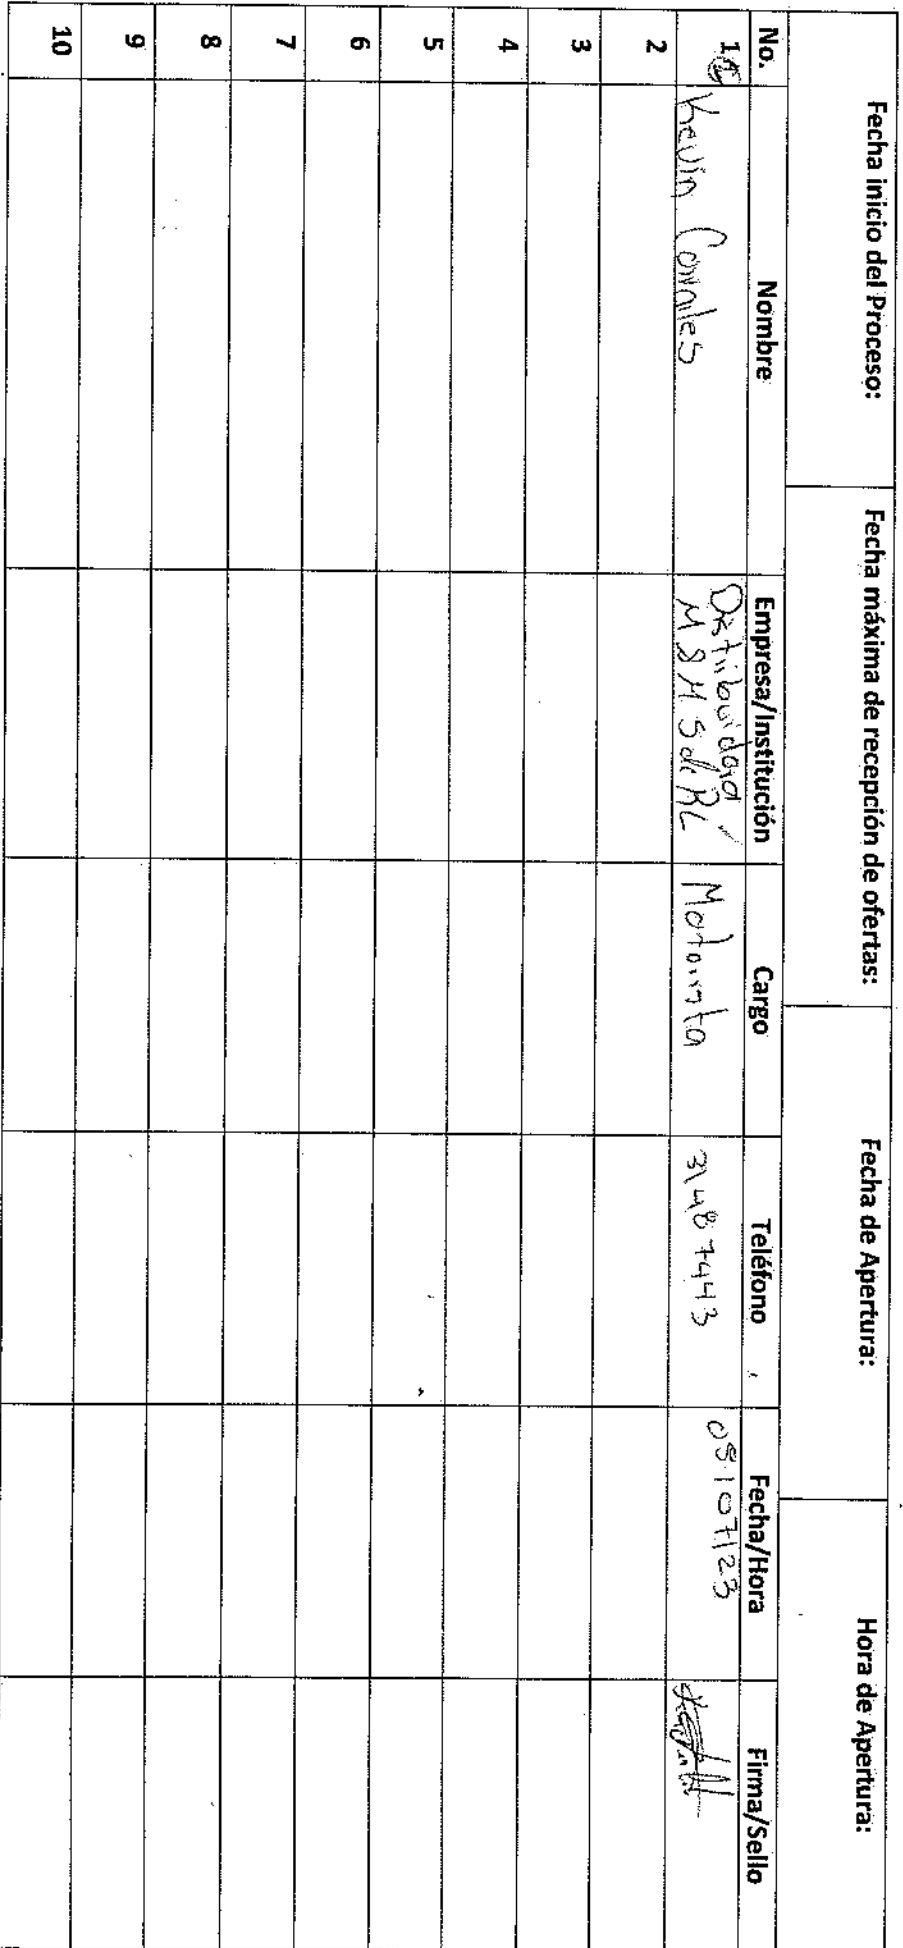 Fecha inicio del Proceso: Fecha máxima de recepción de ofertas: Fecha de Apertura: Hora de Apertura:
No. Nombre Empresa/Institución Cargo Teléfono Fecha/Hora Firma/Sello
1 Kevin Corrales Distribuidora M&M S de RL Motorista 31487443 05/07/23
2
3
4
5
6
7
8
9
10